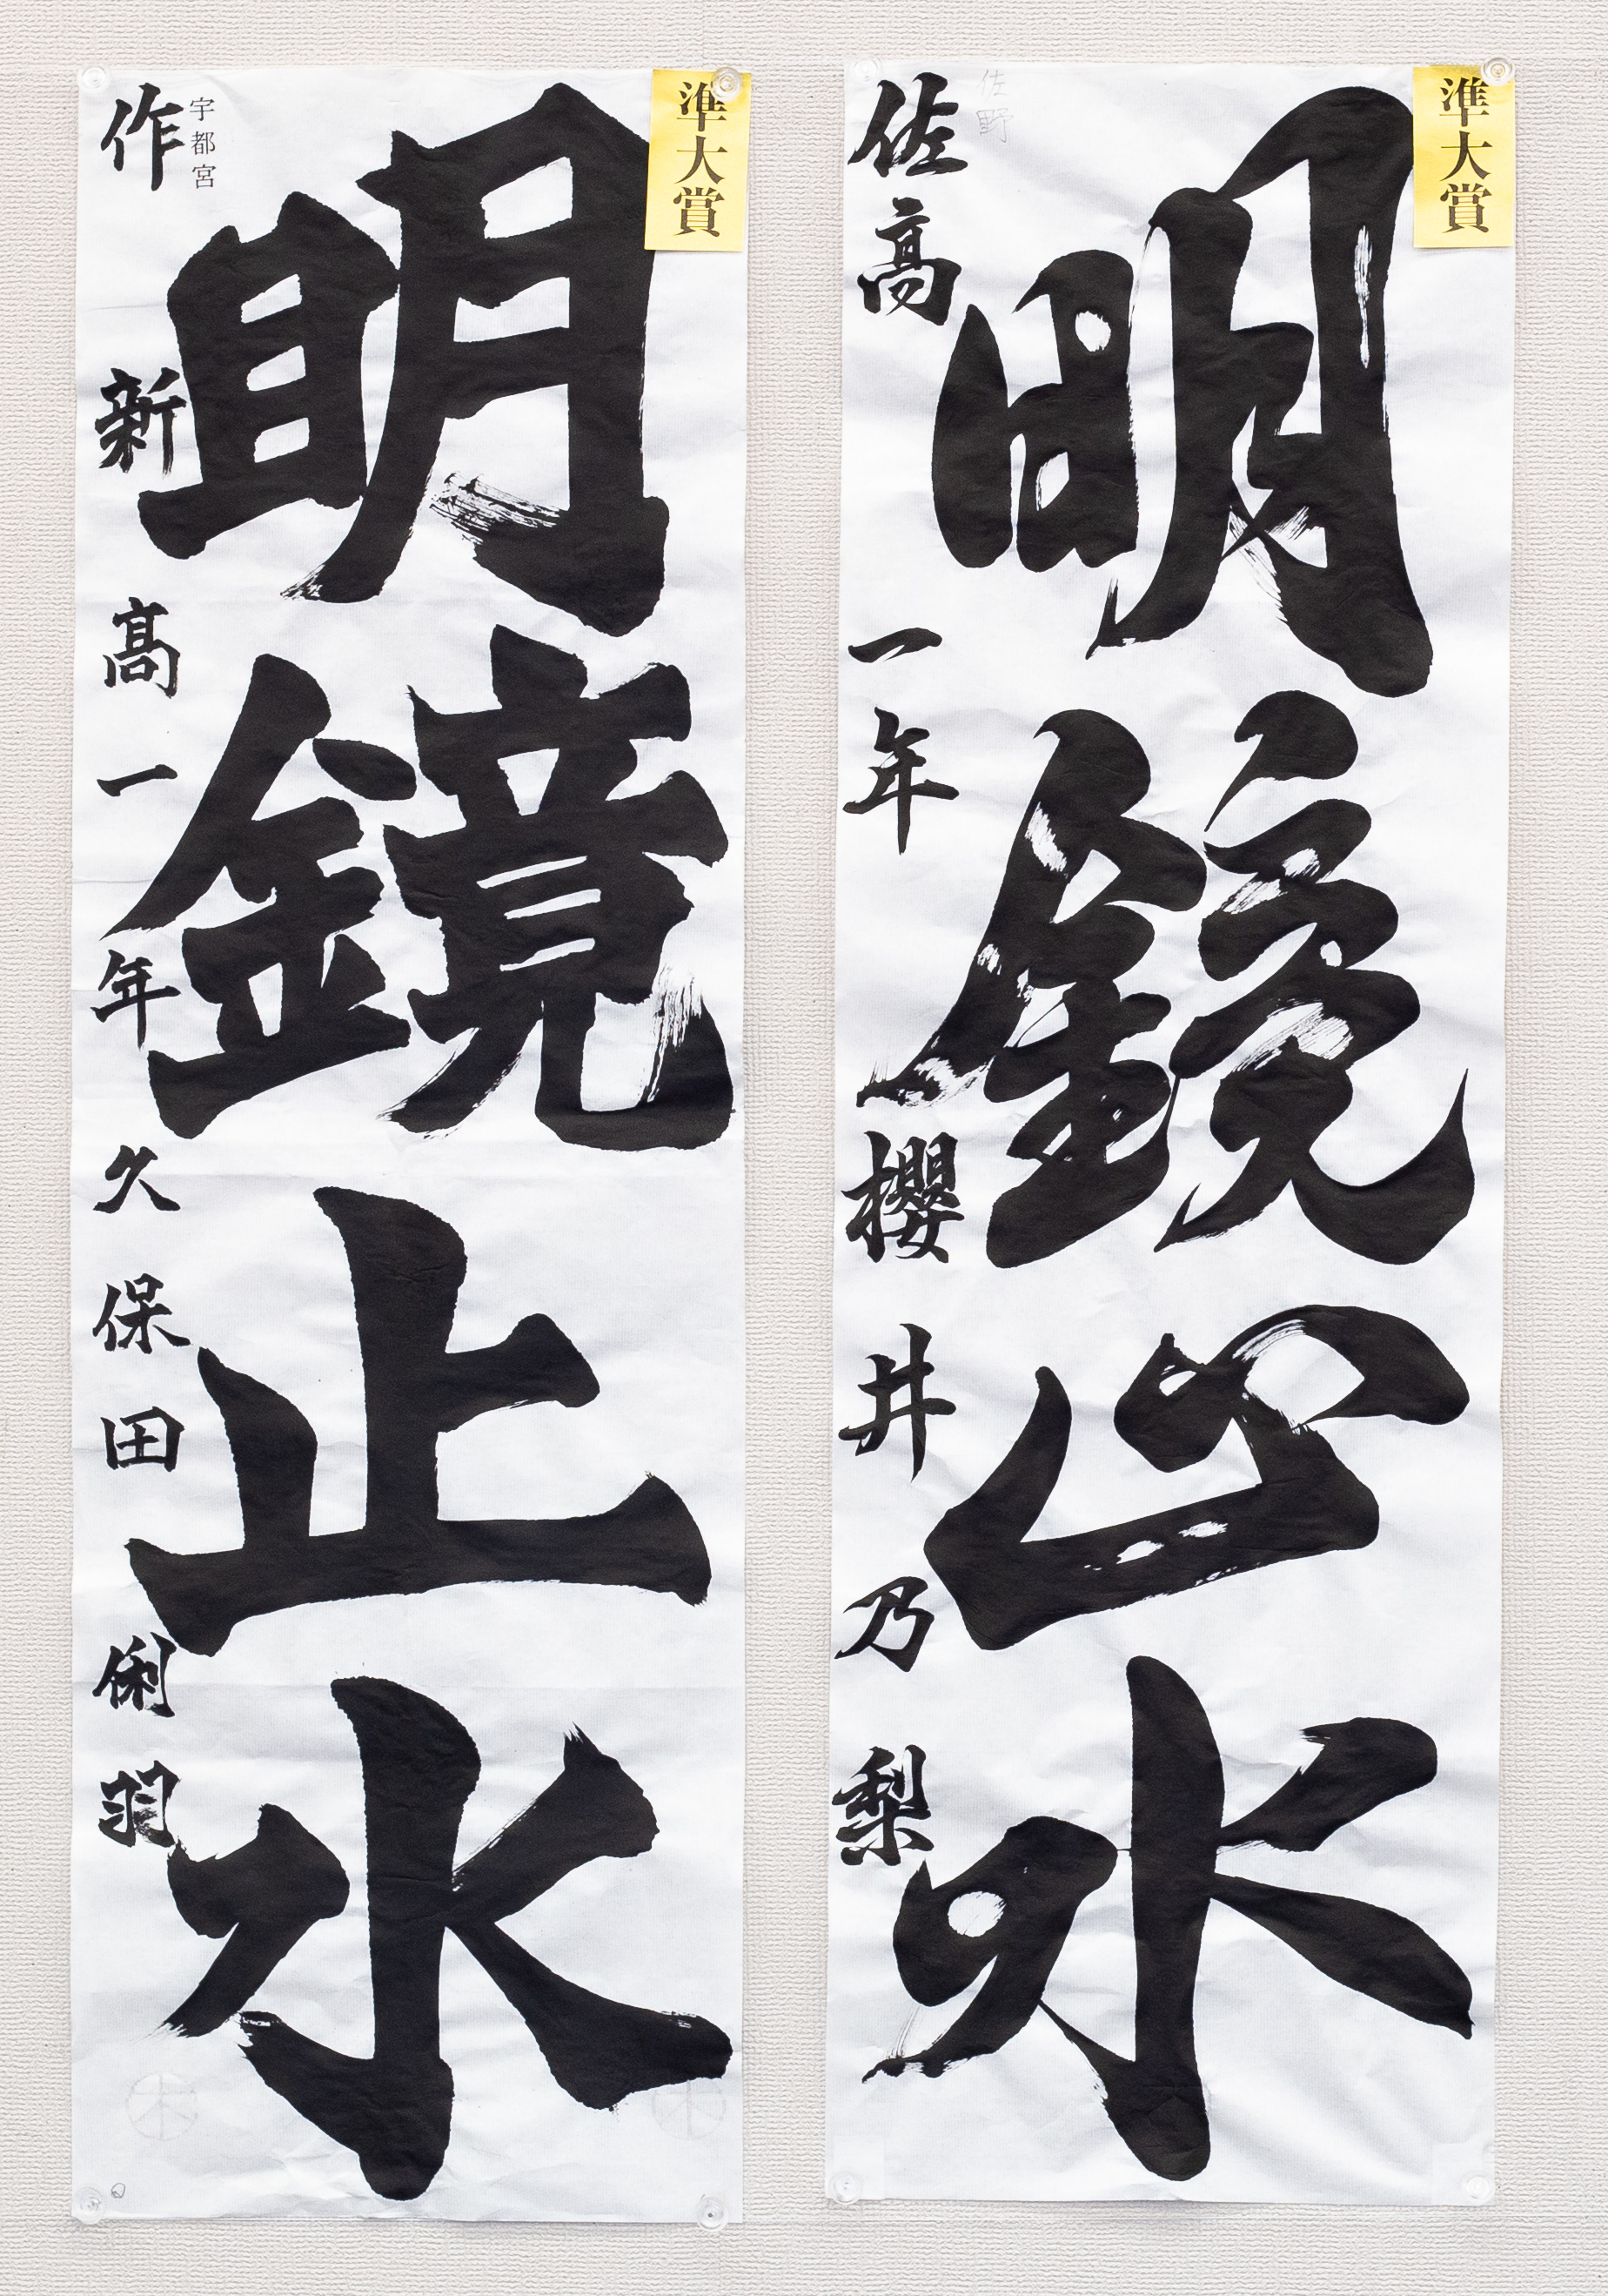 準大賞
明鏡止水
佐野
佐高一年櫻井乃梨
準大賞
明鏡止水
宇都宮
作新高一年久保田俐羽